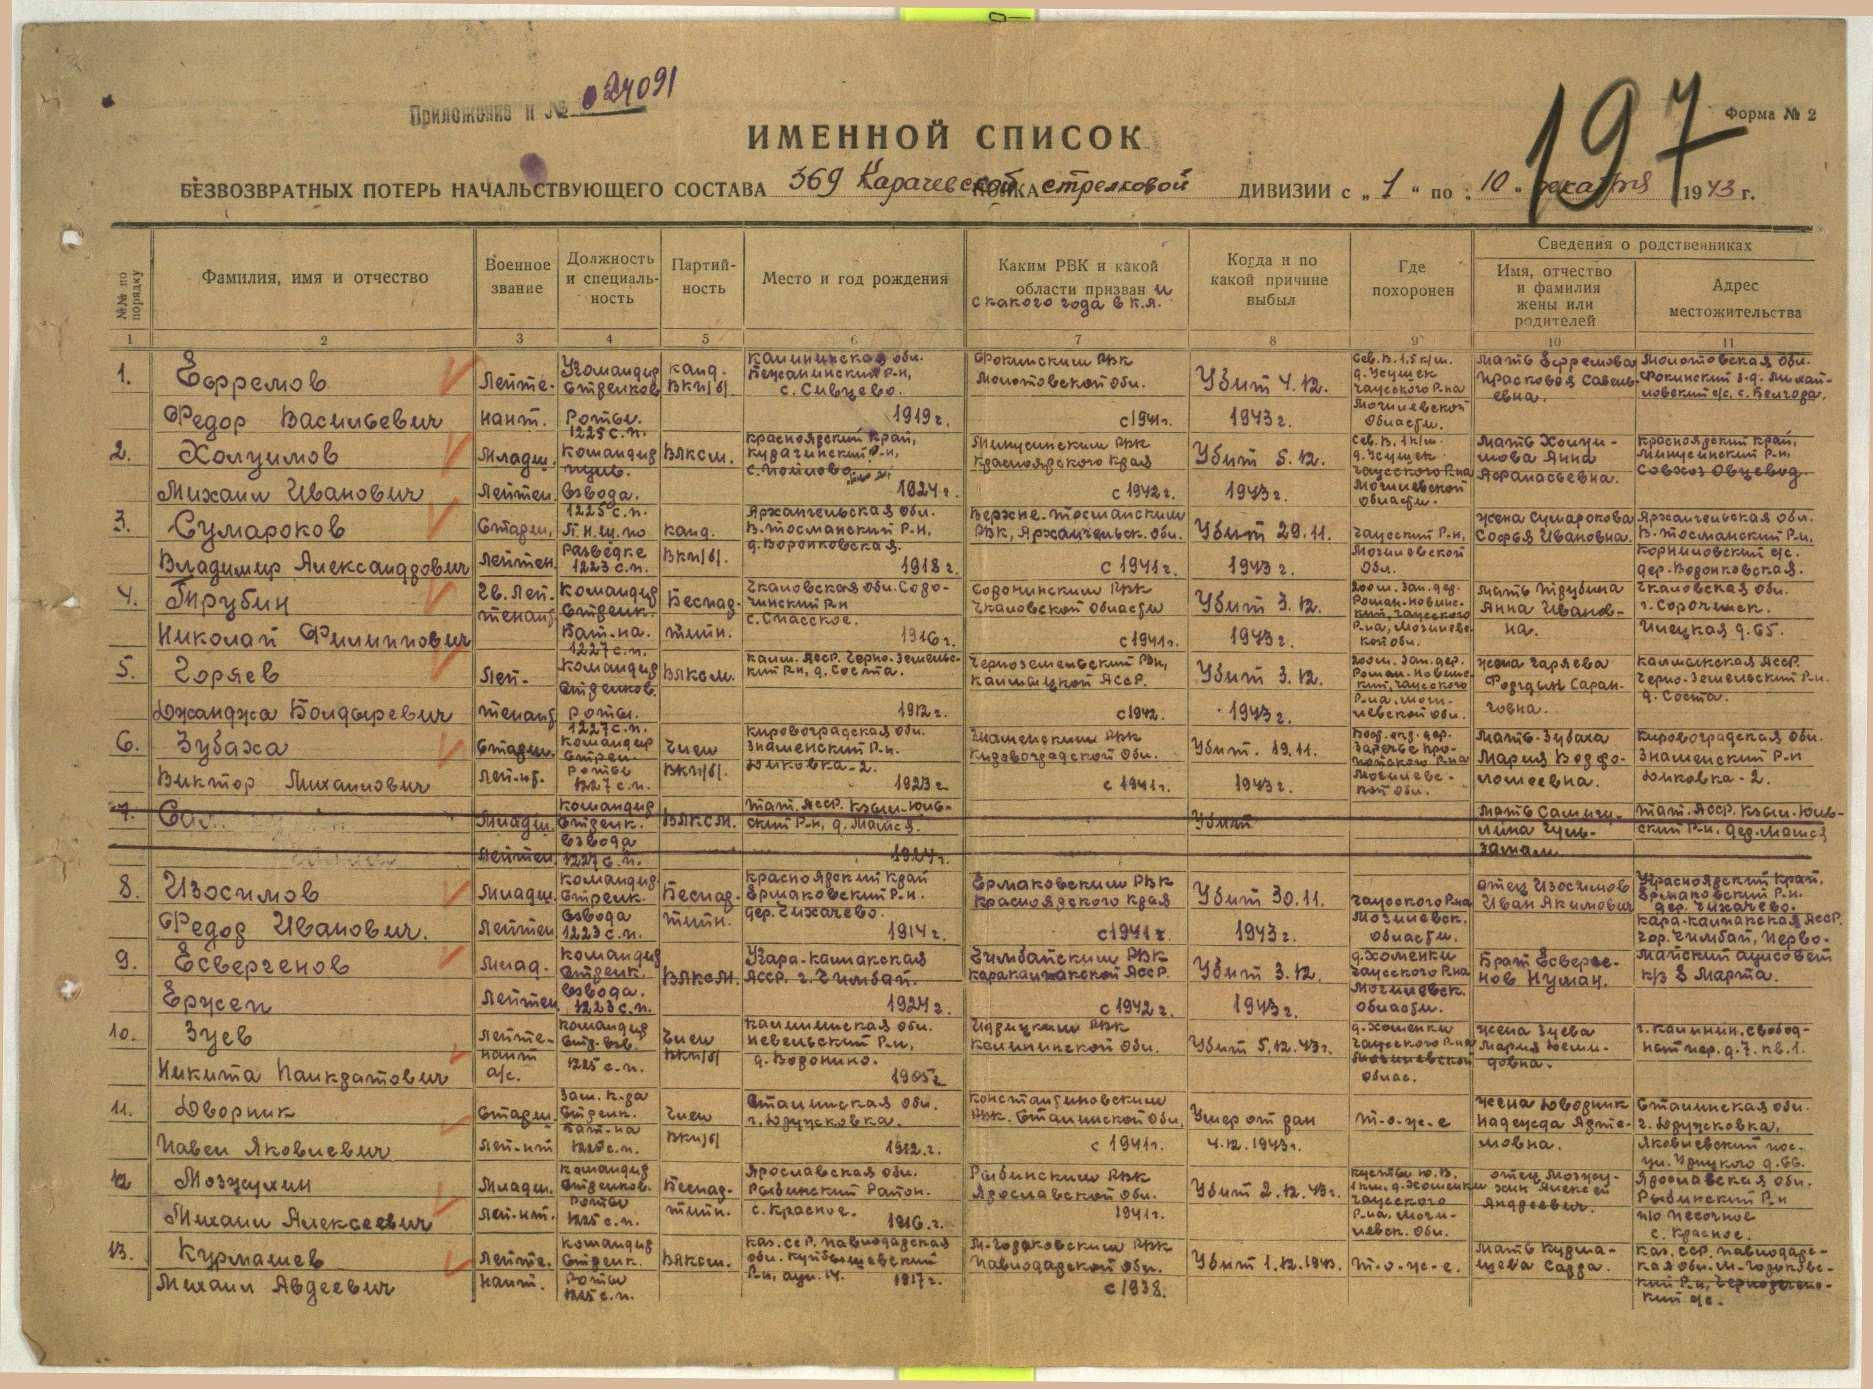 Приложение к № 024091
197
Форма № 2
ИМЕННОЙ СПИСОК
БЕЗВОЗВРАТНЫХ ПОТЕРЬ НАЧАЛЬСТВУЮЩЕГО СОСТАВА 369 Карачевской стрелковой ДИВИЗИИ с „1“ по „10“ декабря 1943 г.
№№ по порядку
Фамилия, имя и отчество
Военное звание
Должность и специальность
Партийность
Место и год рождения
Каким РВК и какой области призван и с какого года в К.А.
Когда и по какой причине выбыл
Где похоронен
Сведения о родственниках
Имя, отчество и фамилия жены или родителей
Адрес местожительства
1 2 3 4 5 6 7 8 9 10 11
1. Ефремов Федор Васильевич
Лейтенант.
Командир Стрелков Роты. 1225 с.п.
канд. ВКП/б/.
Калининская обл. Бежаницкий Р-н, с. Сивцево. 1919 г.
Фокинским РВК Молотовской обл. с 1941 г.
Убит 4.12. 1943 г.
Сев. В. 1.5 к/м. д. Усушек Чаусского Р-на Могилевской Области.
Мать Ефремова Прасковья Савельевна.
Молотовская обл. Фокинский
2. Холуимов Михаил Иванович
Младш. Лейтен.
Командир пул. взвода. 1225 с.п.
ВЛКСМ.
Красноярский край, Курагинский Р-н, с. Пойлово 1924 г.
Минусинским РВК Красноярского края с 1942 г.
Убит 5.12. 1943 г.
Сев. В. 1 к/м. д. Усушек Чаусского Р-на Могилевской Области.
Мать Анна Афанасьевна.
Красноярский край, Минусинский Р-н, Совхоз Овцевод.
3. Сумароков Владимир Александрович
Старш. Лейтен.
П.Н.Ш. по Разведке 1223 с.п.
канд. ВКП/б/.
Архангельская обл. В. Тоемский Р-н, д. Воронковская. 1918 г.
РВК, Архангельск. обл. с 1941 г.
Убит 29.11. 1943 г.
Чаусский Р-н, Могилевской Обл.
Жена Сумарокова Софья Ивановна.
Архангельская обл. Р-н, Корниловский с/с. дер. Воронковская.
4. Трубин Николай Филиппович
Гв. Лейтенант
Командир Стрелк. Бат-на. 1227 с.п.
Беспартийн.
Чкаловская обл. Сорочинский Р-н с. Спасское. 1916 г.
Сорочинским РВК Чкаловской Области с 1941 г.
Убит 3.12. 1943 г.
200 м. Зап. дер. Чаусского Р-на, Могилевской обл.
Мать Трубина Анна Ивановна.
Чкаловская обл. г. Сорочинск. Илецкая д. 65.
5. Горяев Джанджа Болдыревич
Лейтенант
Командир Стрелков. роты. 1227 с.п.
ВЛКСМ.
Калм. АССР. Черно-Земельский Р-н, д. Состa. 1912 г.
Черноземельский РВК, Калмыцкой АССР. с 1942.
Убит 3.12. 1943 г.
200 м. Зап. дер. Чаусского Р-на, Могилевской обл.
Жена Горяева
Калмыкская АССР. Черно-Земельский Р-н. д. Состa.
6. Зубаха Виктор Михайлович
Старш. Лей-нт.
Командир Стрел. роты 1227 с.п.
Член ВКП/б/.
Кировоградская обл. Знаменский Р-н. Диковка-2. 1923 г.
Знаменским РВК Кировоградской обл. с 1941 г.
Убит. 19.11. 1943 г.
Заречье Пропойского Р-на Могилевской обл.
Мать-Зубаха Мария Варфоломеевна.
Кировоградская обл. Знаменский Р-н Диковка-2.
7.
Младш. Лейтен.
Командир Стрелк. взвода 1227 с.п.
ВЛКСМ.
Тат. АССР. 1924 г.
Убит
Мать
Тат. АССР.
8. Изосимов Федор Иванович.
Младш. Лейтен.
Командир Стрелк. взвода 1223 с.п.
Беспартийн.
Красноярский край Ермаковский Р-н. дер. Чихачево. 1914 г.
Ермаковским РВК Красноярского края с 1941 г.
Убит 30.11. 1943 г.
Чаусского Р-на Могилевск. Области.
Отец Изосимов Иван Акимович
Красноярский край, Ермаковский Р-н. дер. Чихачево.
9. Есвергенов Ержеп
Млад. Лейтен.
Командир Стрелк. взвода. 1223 с.п.
ВЛКСМ.
Кара-калпакская АССР. г. Чимбай. 1924 г.
Чимбайским РВК Каракалпакской АССР. с 1942 г.
Убит 3.12. 1943 г.
д. Хоменки Чаусского Р-на Могилевск. Области.
Брат Есвергенов Нуман.
Кара-калпакская АССР. гор. Чимбай, Первомайский аулсовет к/з 8 Марта.
10. Зуев Никита Панкратович
Лейтенант а/с.
Командир Стр. взв. 1225 с.п.
Член ВКП/б/
Калининская обл. Невельский Р-н, д. Воронино. 1905 г.
Идрицким РВК Калининской обл.
Убит 5.12.43 г.
д. Хоменки Чаусского Р-на Могилевской Облас.
Жена Зуева Мария
г. Калинин. д. 7. кв. 1.
11. Дворник Павел Яковлевич
Старш. Лей-нт
Зам. к-ра Стрелк. бат-на 1225 с.п.
Член ВКП/б/
Сталинская обл. г. Дружковка. 1912 г.
Константиновским РВК. Сталинской обл. с 1941 г.
Умер от ран 4.12.1943 г.
т-о-ж-е
Жена Дворник Надежда Артемовна.
Сталинская обл. г. Дружковка, Яковлевский пос. ул. Урицкого д. 66.
12 Мозжухин Михаил Алексеевич
Младш. Лей-нт.
Командир Стрелков. роты 1225 с.п.
Беспартийн.
Ярославская обл. Рыбинский Район. с. Красное. 1916 г.
Рыбинским РВК Ярославской обл. 1941 г.
Убит 2.12.43 г.
1 км. д. Хоменки Чаусского Р-на, Могилевск. обл.
Отец Мозжухин Алексей Андреевич.
Ярославская обл. Рыбинский Р-н п/о Песочное с. Красное.
13. Курмашев Михаил Авдеевич
Лейтенант.
Командир Стрелк. роты 1225 с.п.
ВЛКСМ.
Каз. ССР. Павлодарская обл. Куйбышевский Р-н, аул. 14. 1917 г.
РВК Павлодарской обл. с 1938.
Убит 1.12.1943.
т-о-ж-е.
Мать Курмашева Сарра.
Каз. ССР. Павлодарская обл.